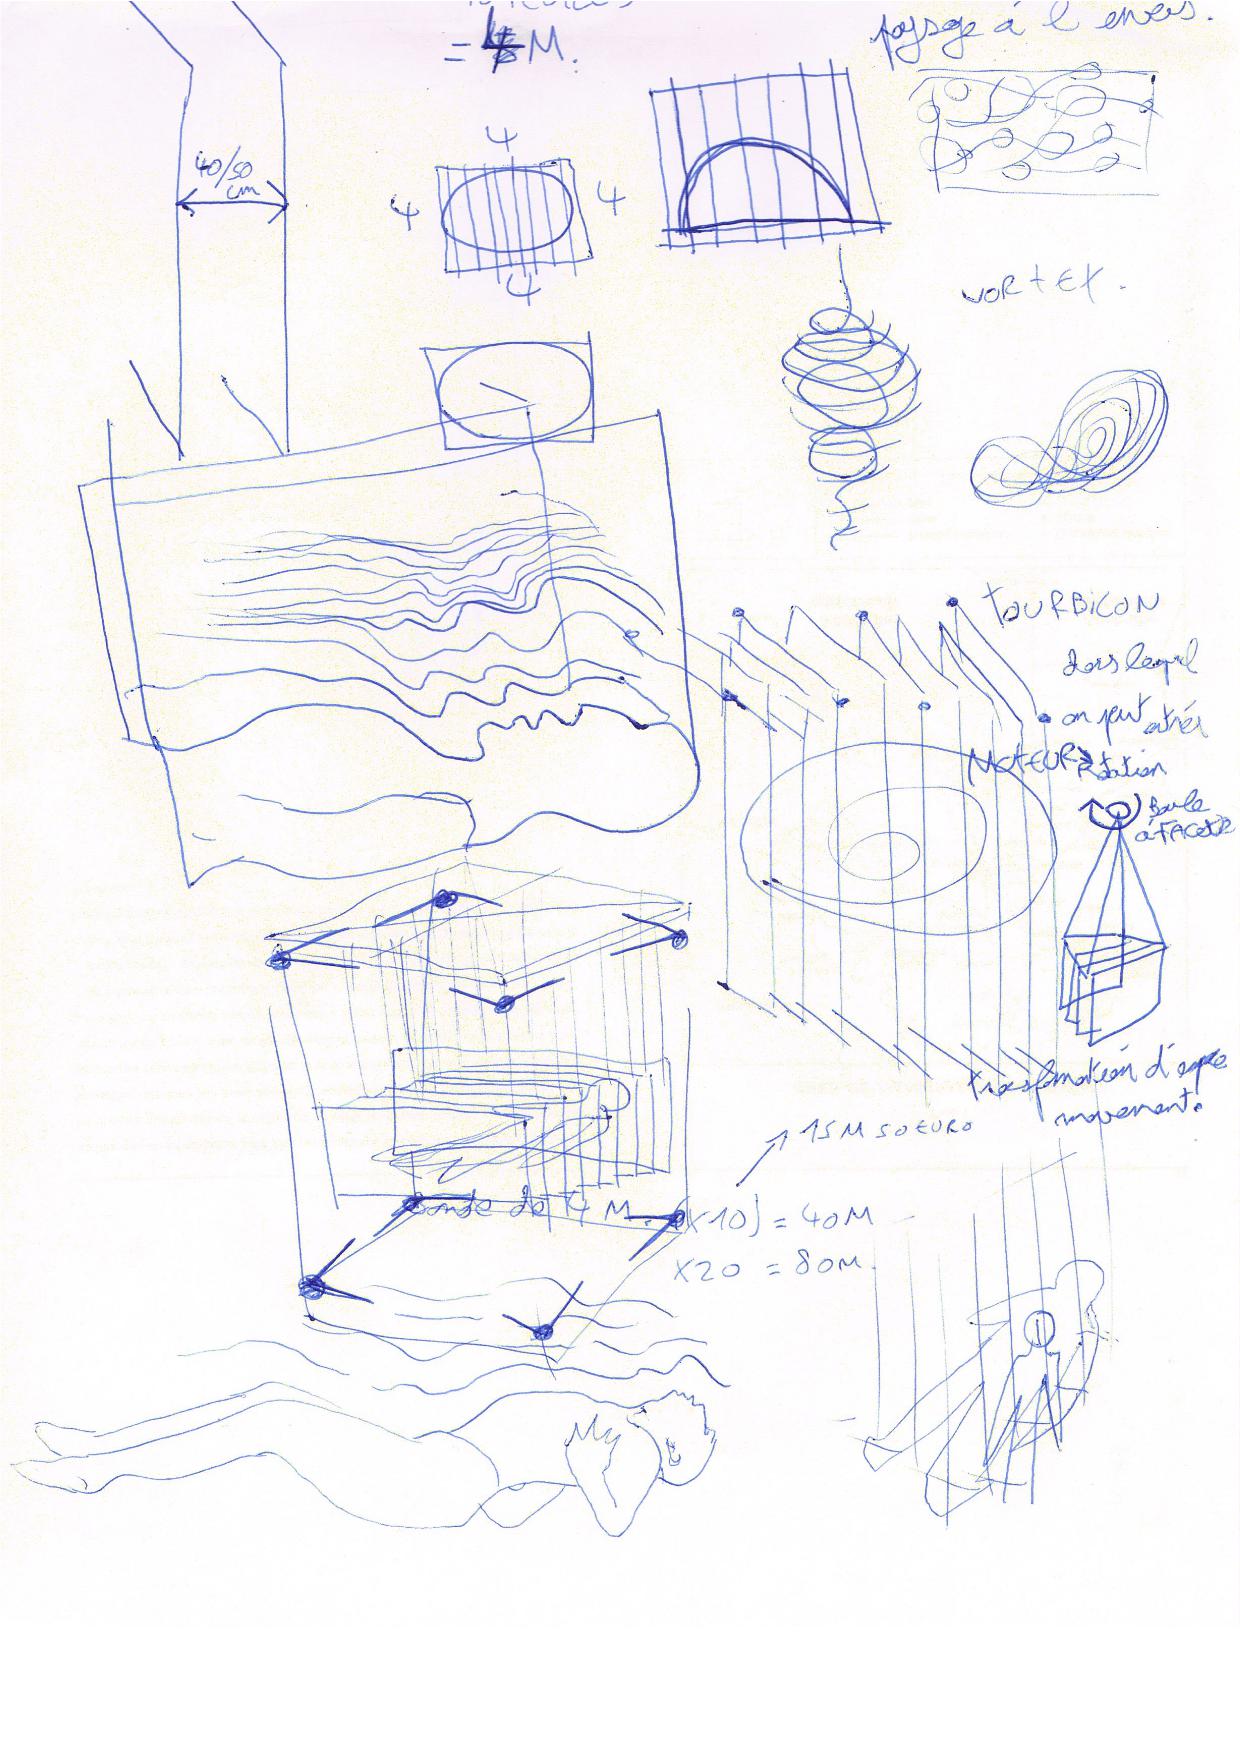 = 4 M.
paysage à l'envers.
40/50
cm
4
4
4
4
VORTEX.
TOURBILLON
dans lequel
on peut entrer
MOTEUR Rotation
Boule
à FACETTE
transformation d'espace
mouvement.
15M 50 EURO
bande de 4 M. (x10) = 40M
x20 = 80M.